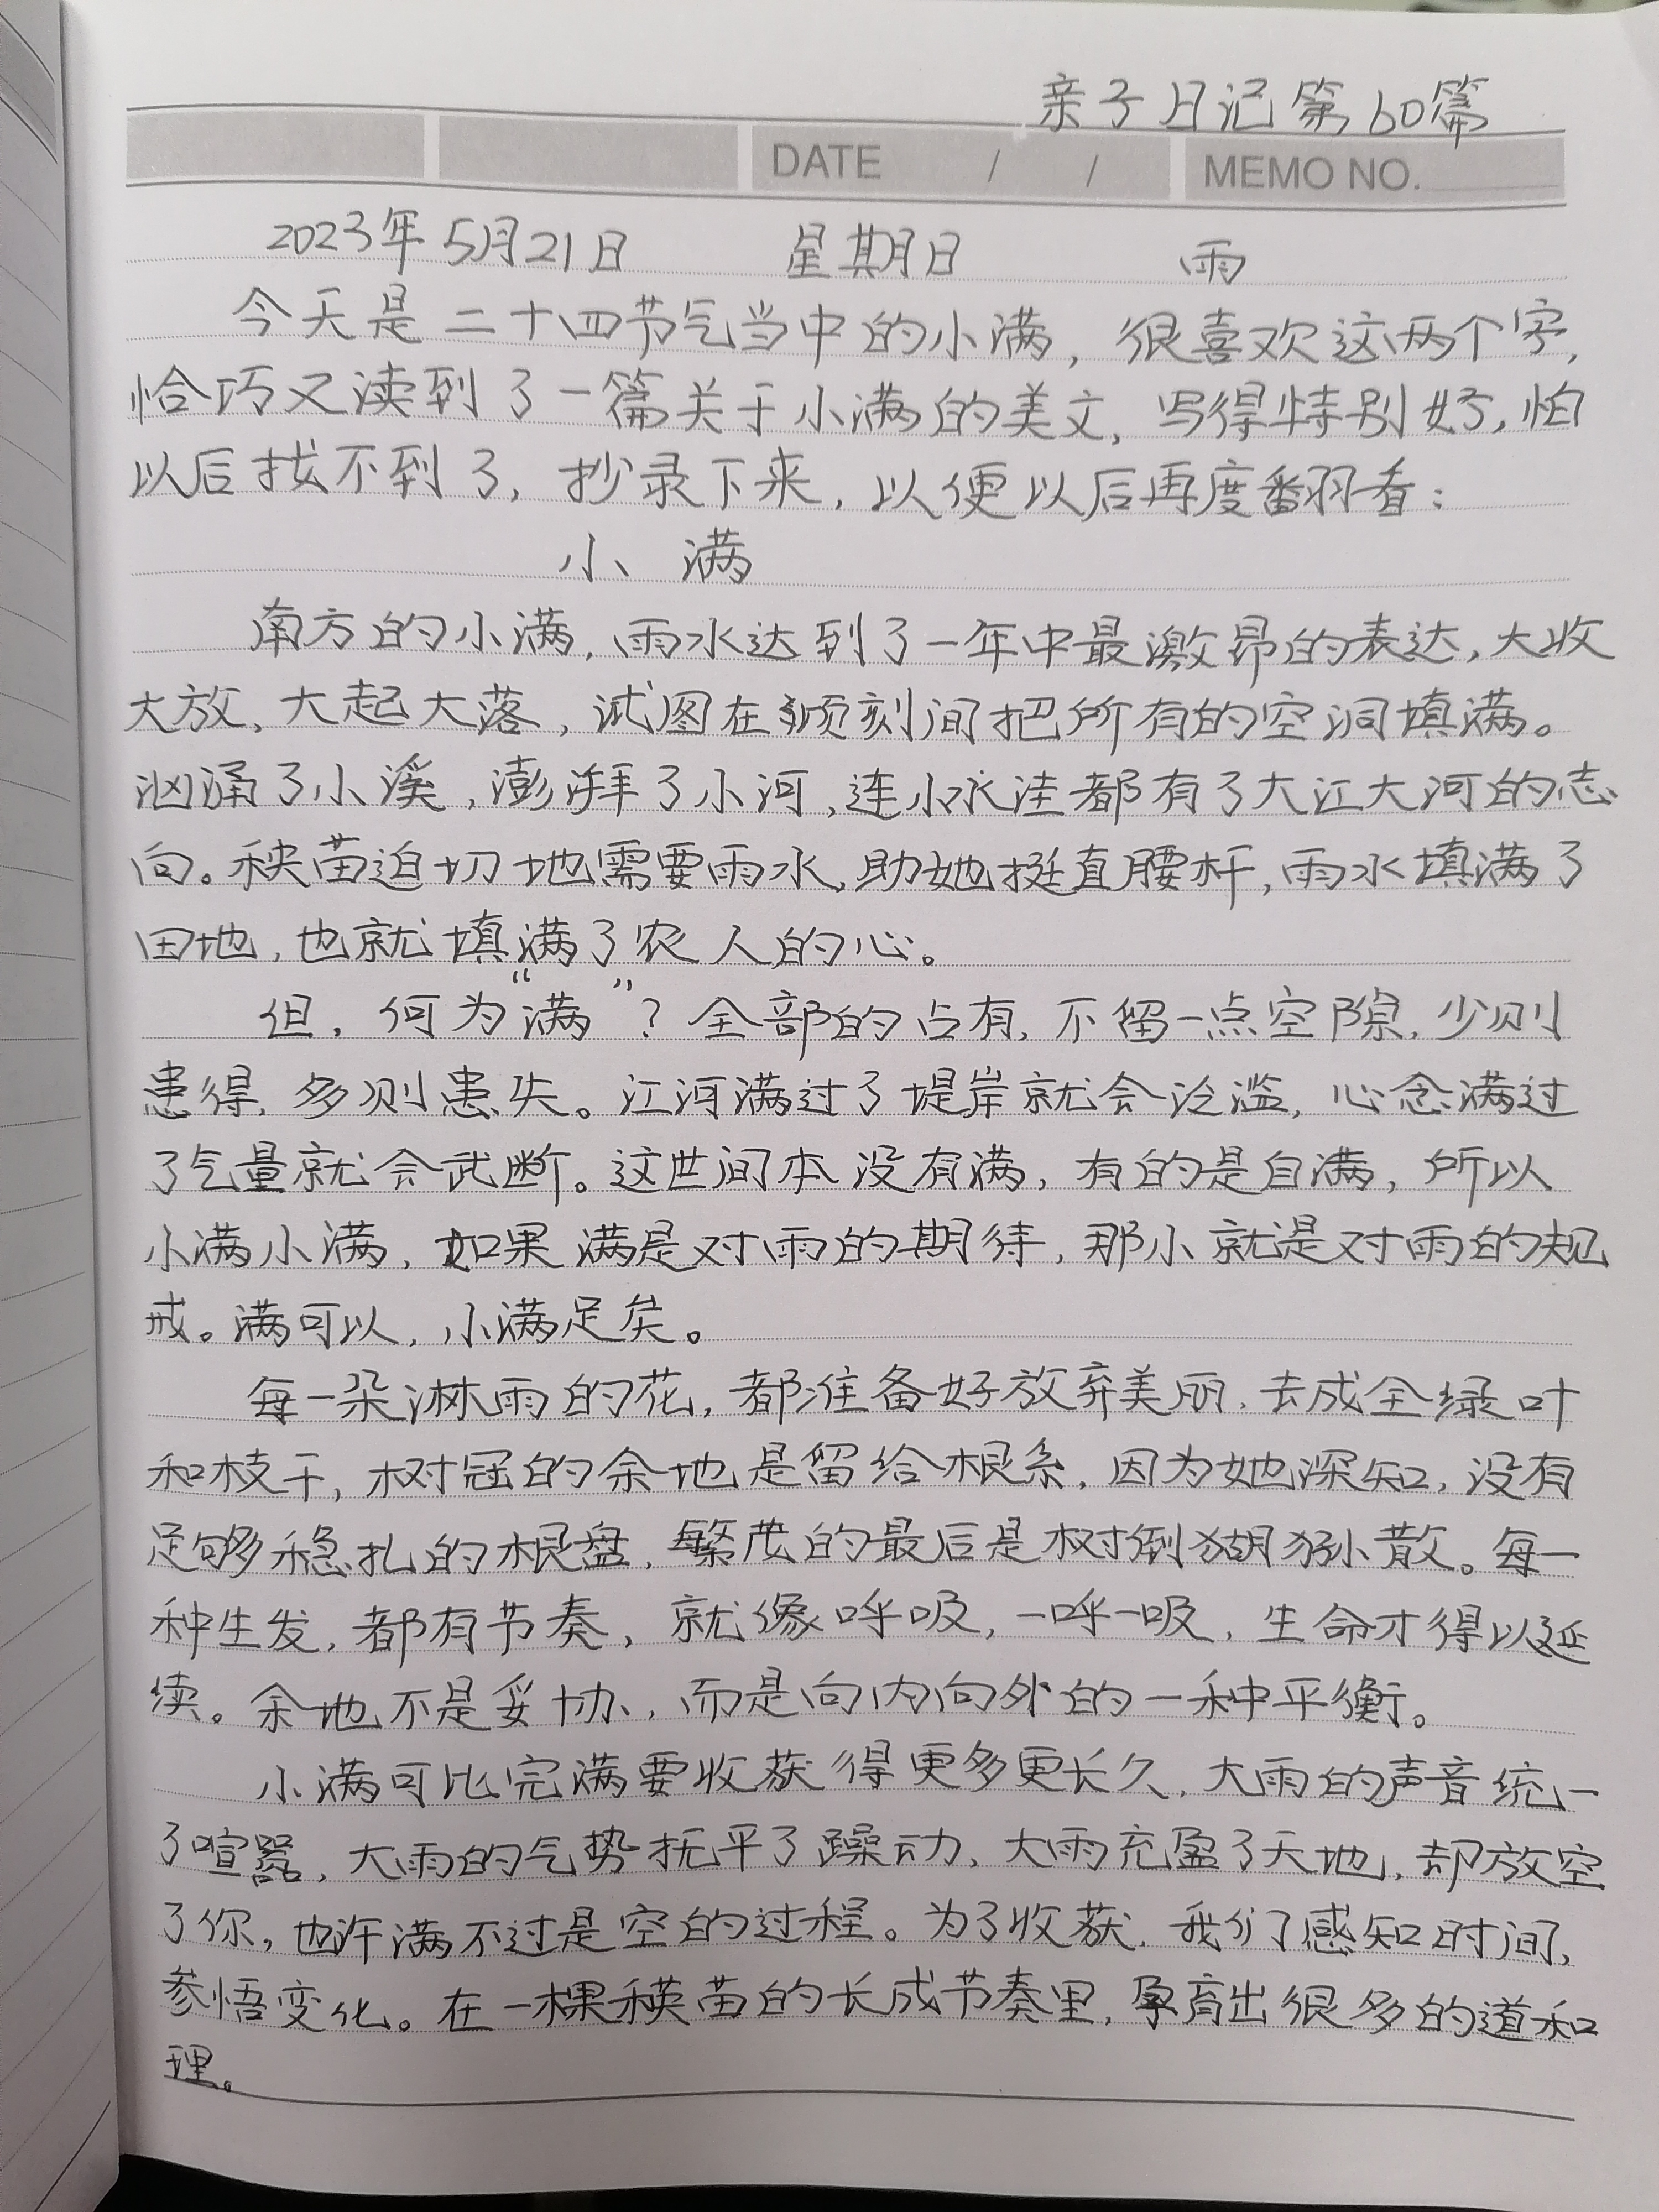 亲子日记第60篇
DATE / / MEMO NO.
2023年5月21日 星期日 雨
今天是二十四节气当中的小满，很喜欢这两个字，
恰巧又读到了一篇关于小满的美文，写得特别好，怕
以后找不到了，抄录下来，以便以后再度翻看：
小满
南方的小满，雨水达到了一年中最激昂的表达，大收
大放，大起大落，试图在顷刻间把所有的空洞填满。
汹涌了小溪，澎湃了小河，连小水洼都有了大江大河的志
向。秧苗迫切地需要雨水，助她挺直腰杆，雨水填满了
田地，也就填满了农人的心。
但，何为“满”？全部的占有，不留一点空隙，少则
患得，多则患失。江河满过了堤岸就会泛滥，心念满过
了气量就会武断。这世间本没有满，有的是自满，所以
小满小满，如果满是对雨的期待，那小就是对雨的规
戒。满可以，小满足矣。
每一朵淋雨的花，都准备好放弃美丽，去成全绿叶
和枝干，树冠的余地是留给根系，因为她深知，没有
足够稳扎的根盘，繁茂的最后是树倒猢狲散。每一
种生发，都有节奏，就像呼吸，一呼一吸，生命才得以延
续。余地不是妥协，而是向内向外的一种平衡。
小满可比完满要收获得更多更长久，大雨的声音统一
了喧嚣，大雨的气势抚平了躁动，大雨充盈了天地，却放空
了你，也许满不过是空的过程。为了收获，我们感知时间，
参悟变化。在一棵秧苗的长成节奏里，孕育出很多的道和
理。